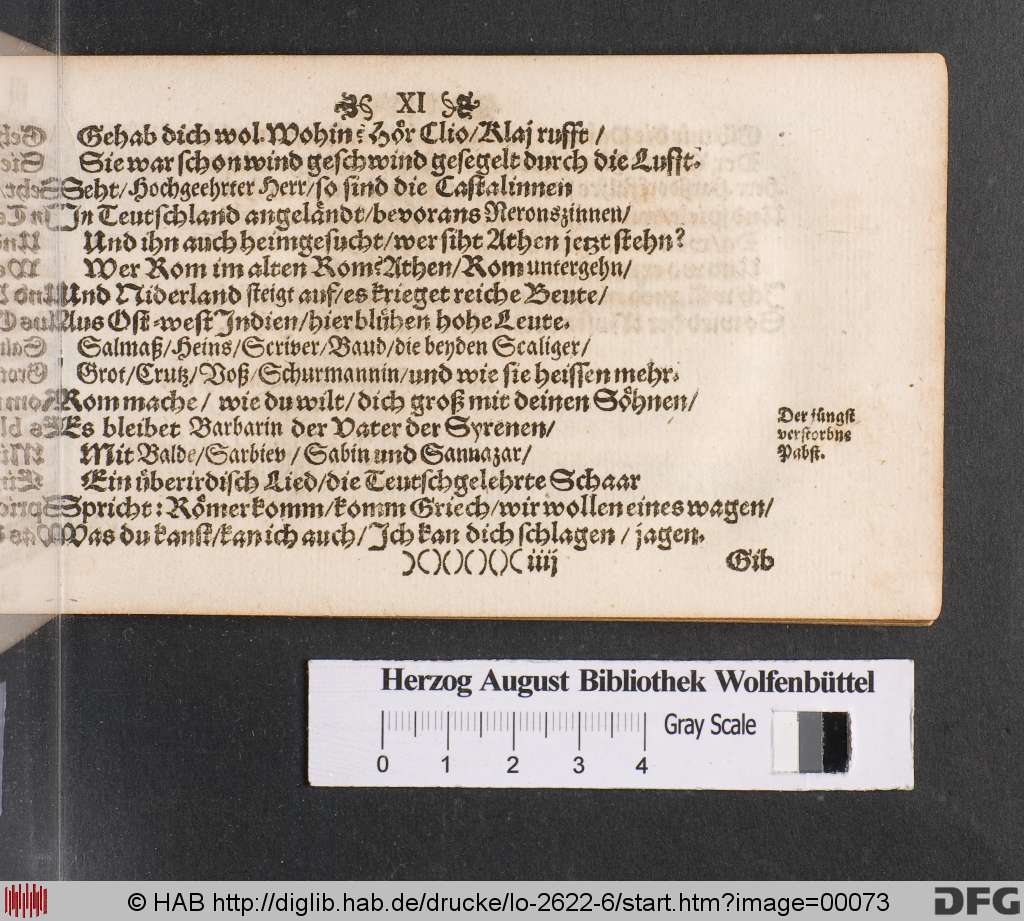 XI
Gehab dich wol. Wohin? Hör Clio/Klaj rufft/
Sie war schon wind geschwind gesegelt durch die Lufft.
Seht/Hochgeehrter Herr/so sind die Castalinnen
In Teutschland angeländt/bevorans Neronszinnen/
Und ihn auch heimgesucht/wer siht Athen jetzt stehn?
Wer Rom im alten Rom? Athen/Rom untergehn/
Und Niderland steigt auf/es krieget reiche Beute/
Aus Ost-west Indien/hier blühen hohe Leute.
Salmaß/Heins/Scriver/Baud/die beyden Scaliger/
Grot/Crutz/Voß/Schurmannin/und wie sie heissen mehr.
Rom mache/ wie du wilt/ dich groß mit deinen Söhnen/
Es bleibet Barbarin der Vater der Syrenen/
Der jüngst
verstorbne
Pabst.
Mit Balde/Sarbiev/ Sabin und Sannazar/
Ein überirdisch Lied/die Teutschgelehrte Schaar
Spricht: Römer komm/komm Griech/wir wollen eines wagen/
Was du kanst/kan ich auch/ Ich kan dich schlagen/ jagen.
)()()()()( iiij
Gib
Herzog August Bibliothek Wolfenbüttel
Gray Scale
0 1 2 3 4
© HAB http://diglib.hab.de/drucke/lo-2622-6/start.htm?image=00073
DFG